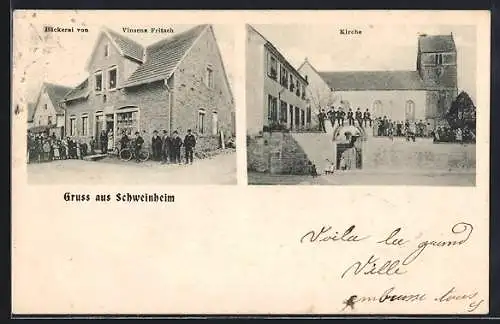 Bäckerei von Vinzenz Fritsch
Kirche
Gruss aus Schweinheim
Voila la grand
Ville
embrasse tous